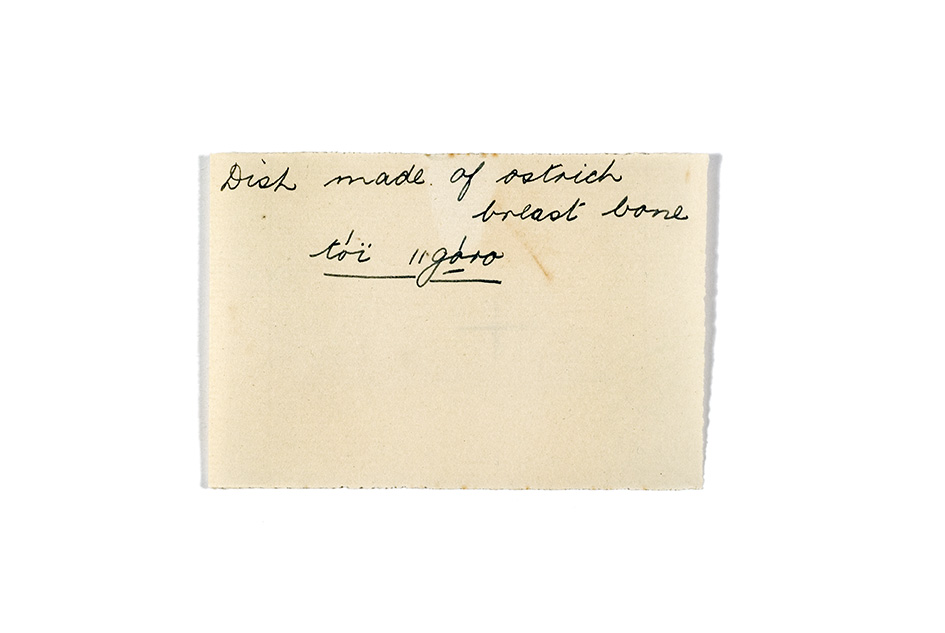 Dish made of ostrich
breast bone
tóï ǁgá̱ro